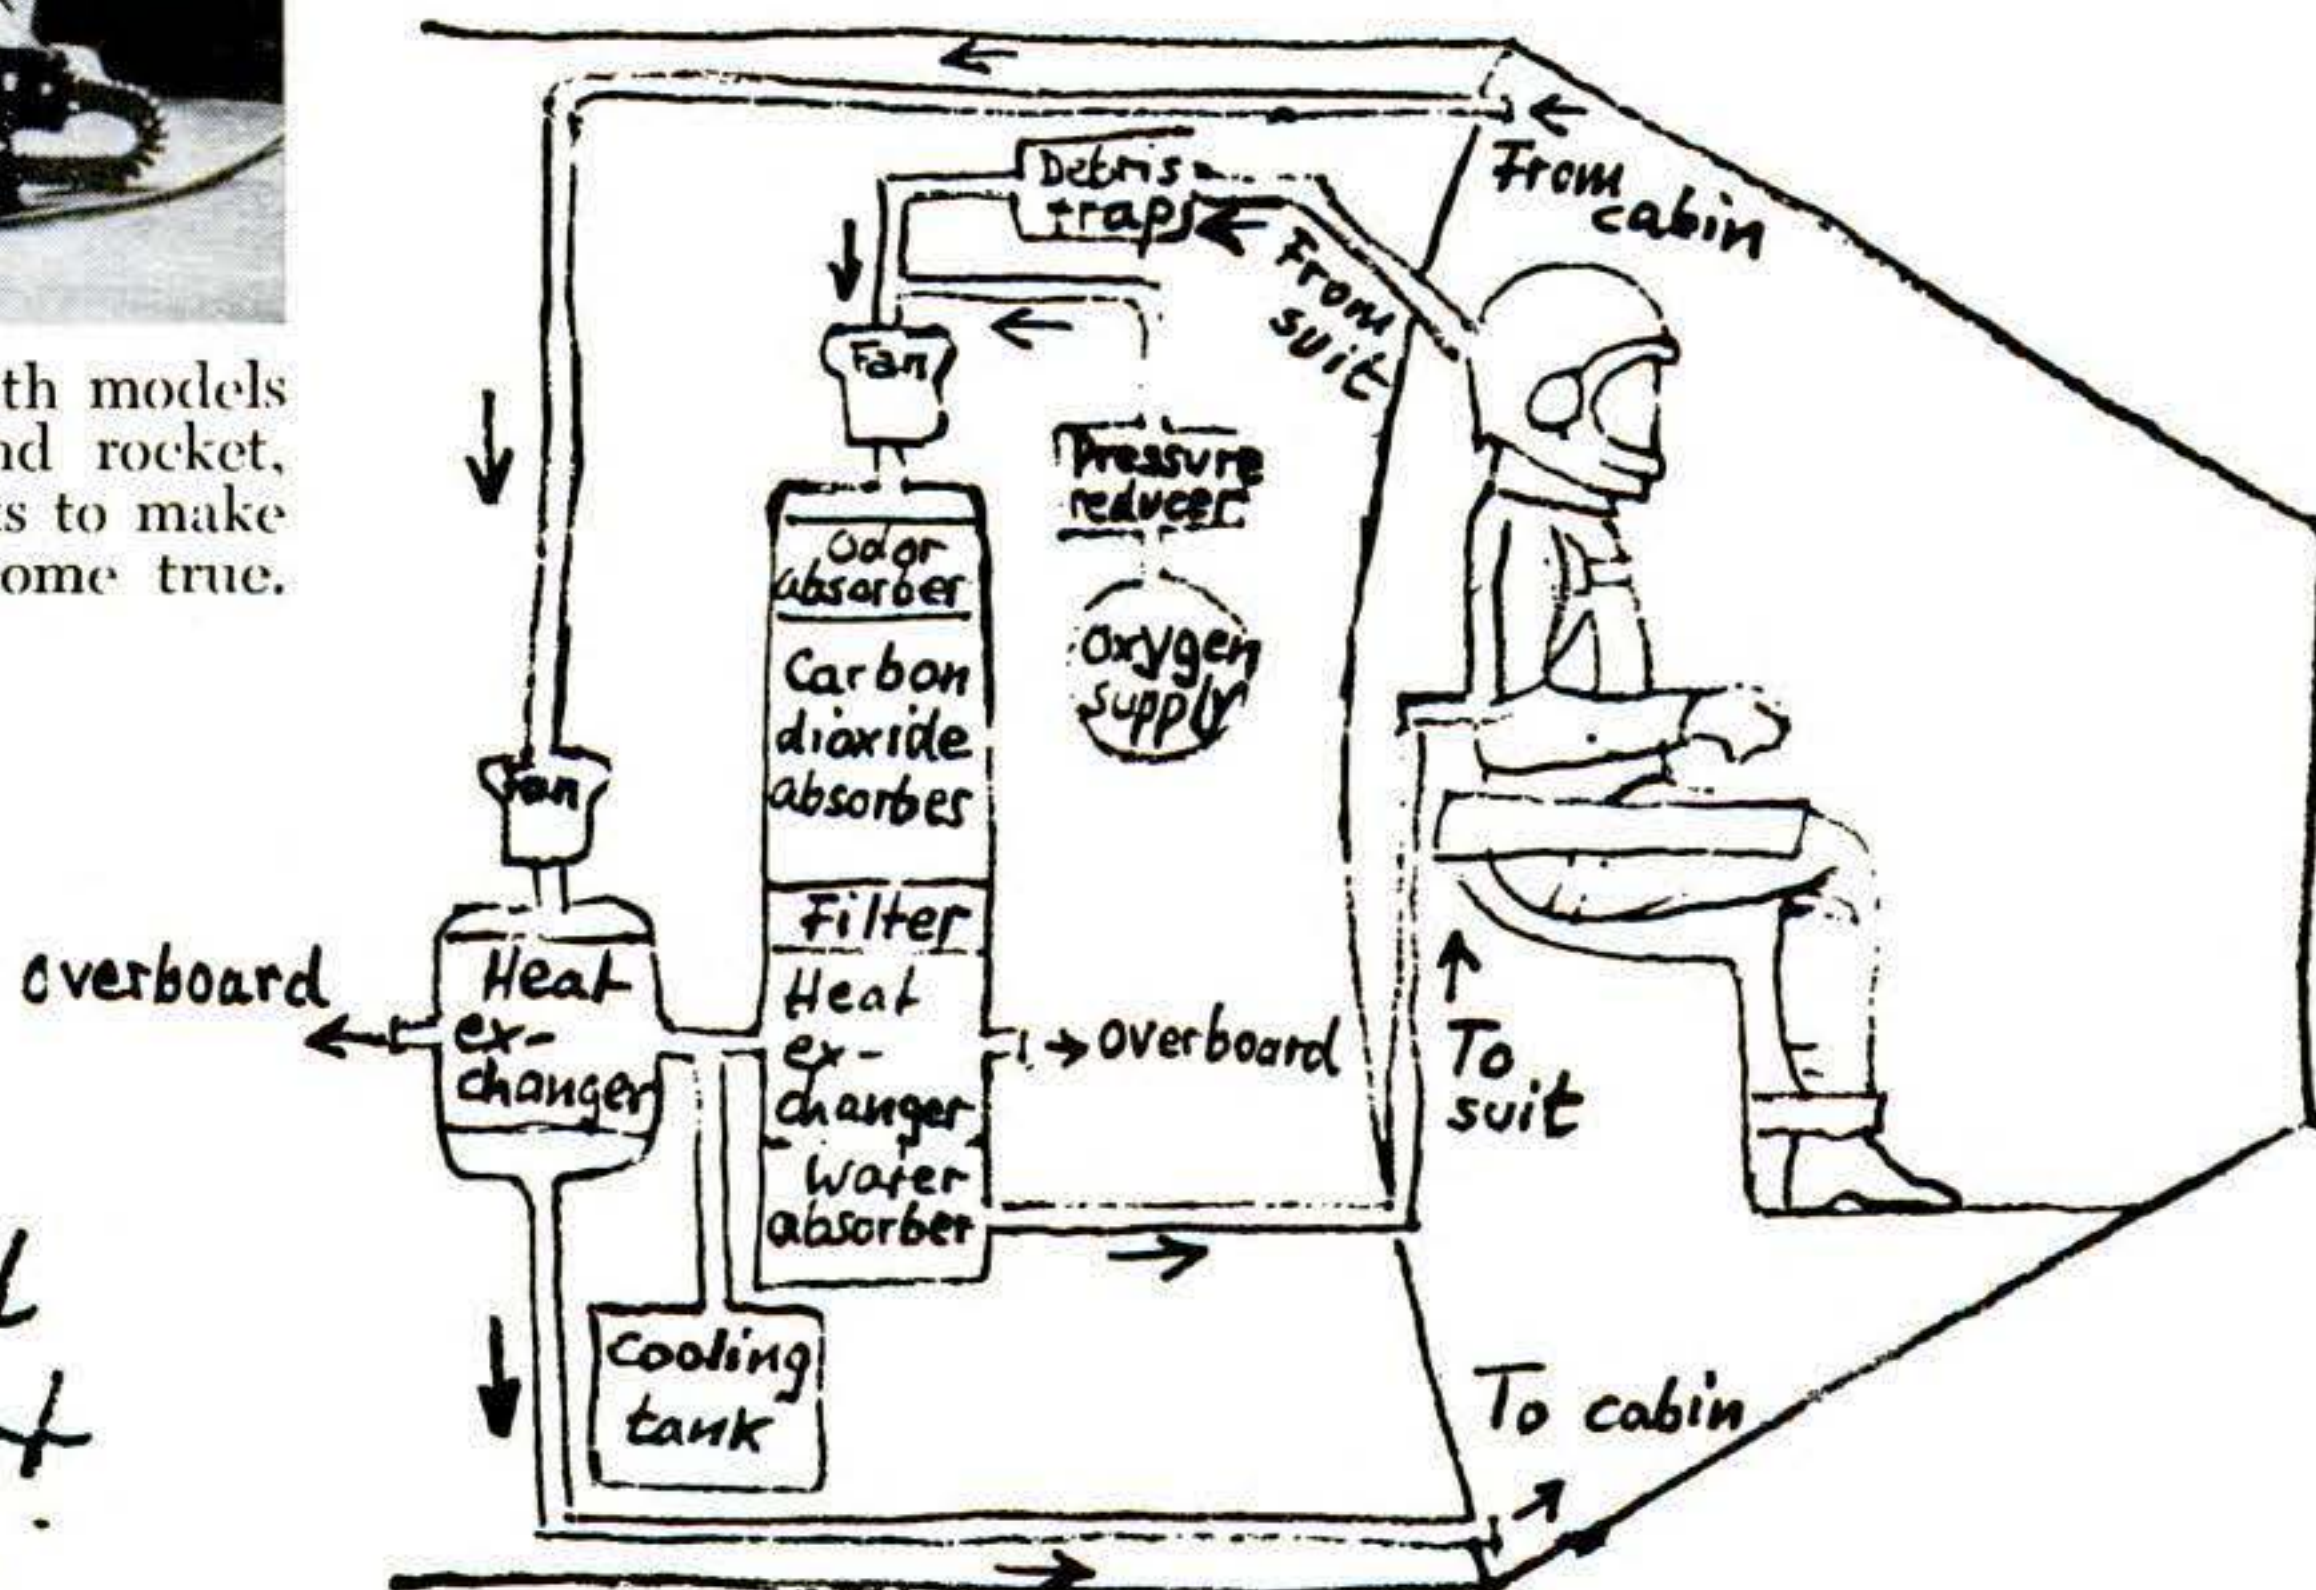 th models
nd rocket,
s to make
ome true.
From
cabin
Debris
traps
From
suit
Fan
Pressure
reducer
Odor
absorber
Oxygen
supply
Carbon
dioxide
absorbes
Fan
Filter
overboard
Heat
ex-
changer
Heat
ex-
changer
overboard
To
suit
Water
absorber
Cooling
tank
To cabin